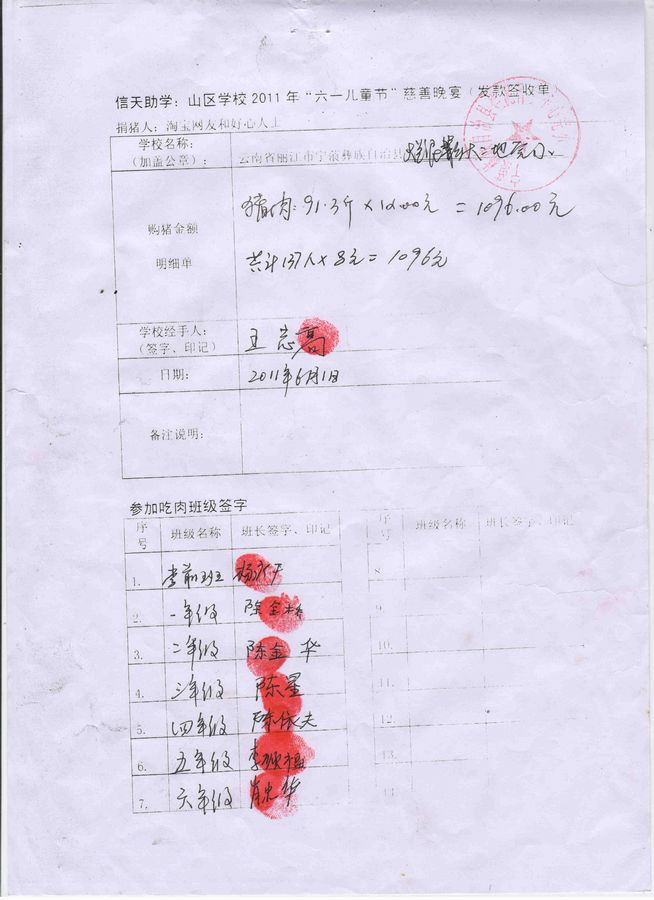 信天助学：山区学校 2011 年“六一儿童节”慈善晚宴（发款签收单）
捐猪人：淘宝网友和好心人士
学校名称：
（加盖公章）： 云南省丽江市宁蒗彝族自治县
购猪金额
明细单
猪肉: 91.3斤 × 12.00元 = 1096.00元
共计137人 × 8元 = 1096元
学校经手人：
（签字、印记）
日期： 2011年6月1日
备注说明：
参加吃肉班级签字
序号 班级名称 班长签字、印记 序号 班级名称 班长签字、印记
1. 学前班 8.
2. 一年级 陈金 9.
3. 二年级 陈金华 10.
4. 三年级 陈星 11.
5. 四年级 陈依夫 12.
6. 五年级 13.
7. 六年级 肖忠华